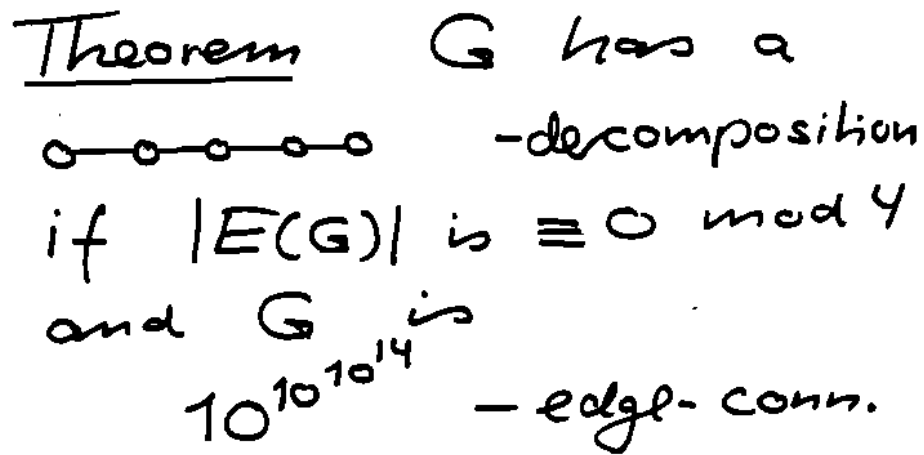 Theorem G has a
-decomposition
if |E(G)| is ≡ 0 mod 4
and G is
10^10^10^14 -edge-conn.